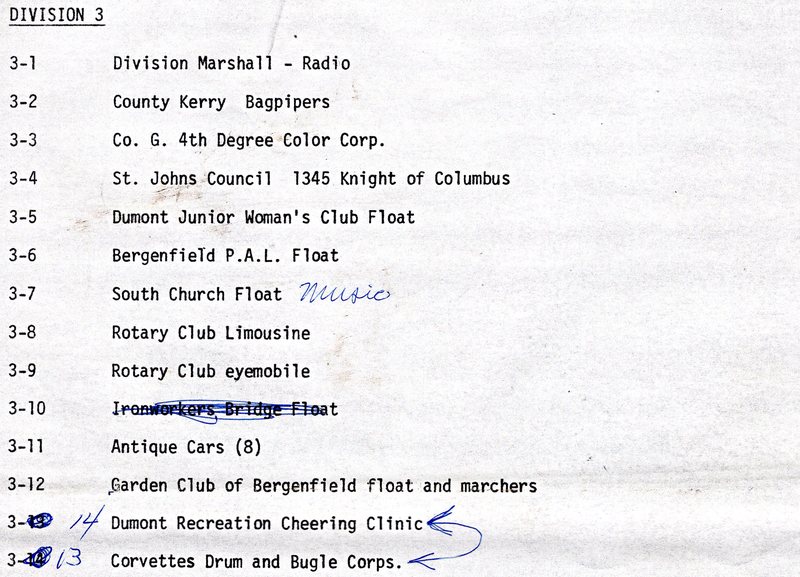 DIVISION 3
3-1 Division Marshall - Radio
3-2 County Kerry Bagpipers
3-3 Co. G. 4th Degree Color Corp.
3-4 St. Johns Council 1345 Knight of Columbus
3-5 Dumont Junior Woman's Club Float
3-6 Bergenfield P.A.L. Float
3-7 South Church Float Music
3-8 Rotary Club Limousine
3-9 Rotary Club eyemobile
3-10 Ironworkers Bridge Float
3-11 Antique Cars (8)
3-12 Garden Club of Bergenfield float and marchers
3-13 14 Dumont Recreation Cheering Clinic
3-14 13 Corvettes Drum and Bugle Corps.